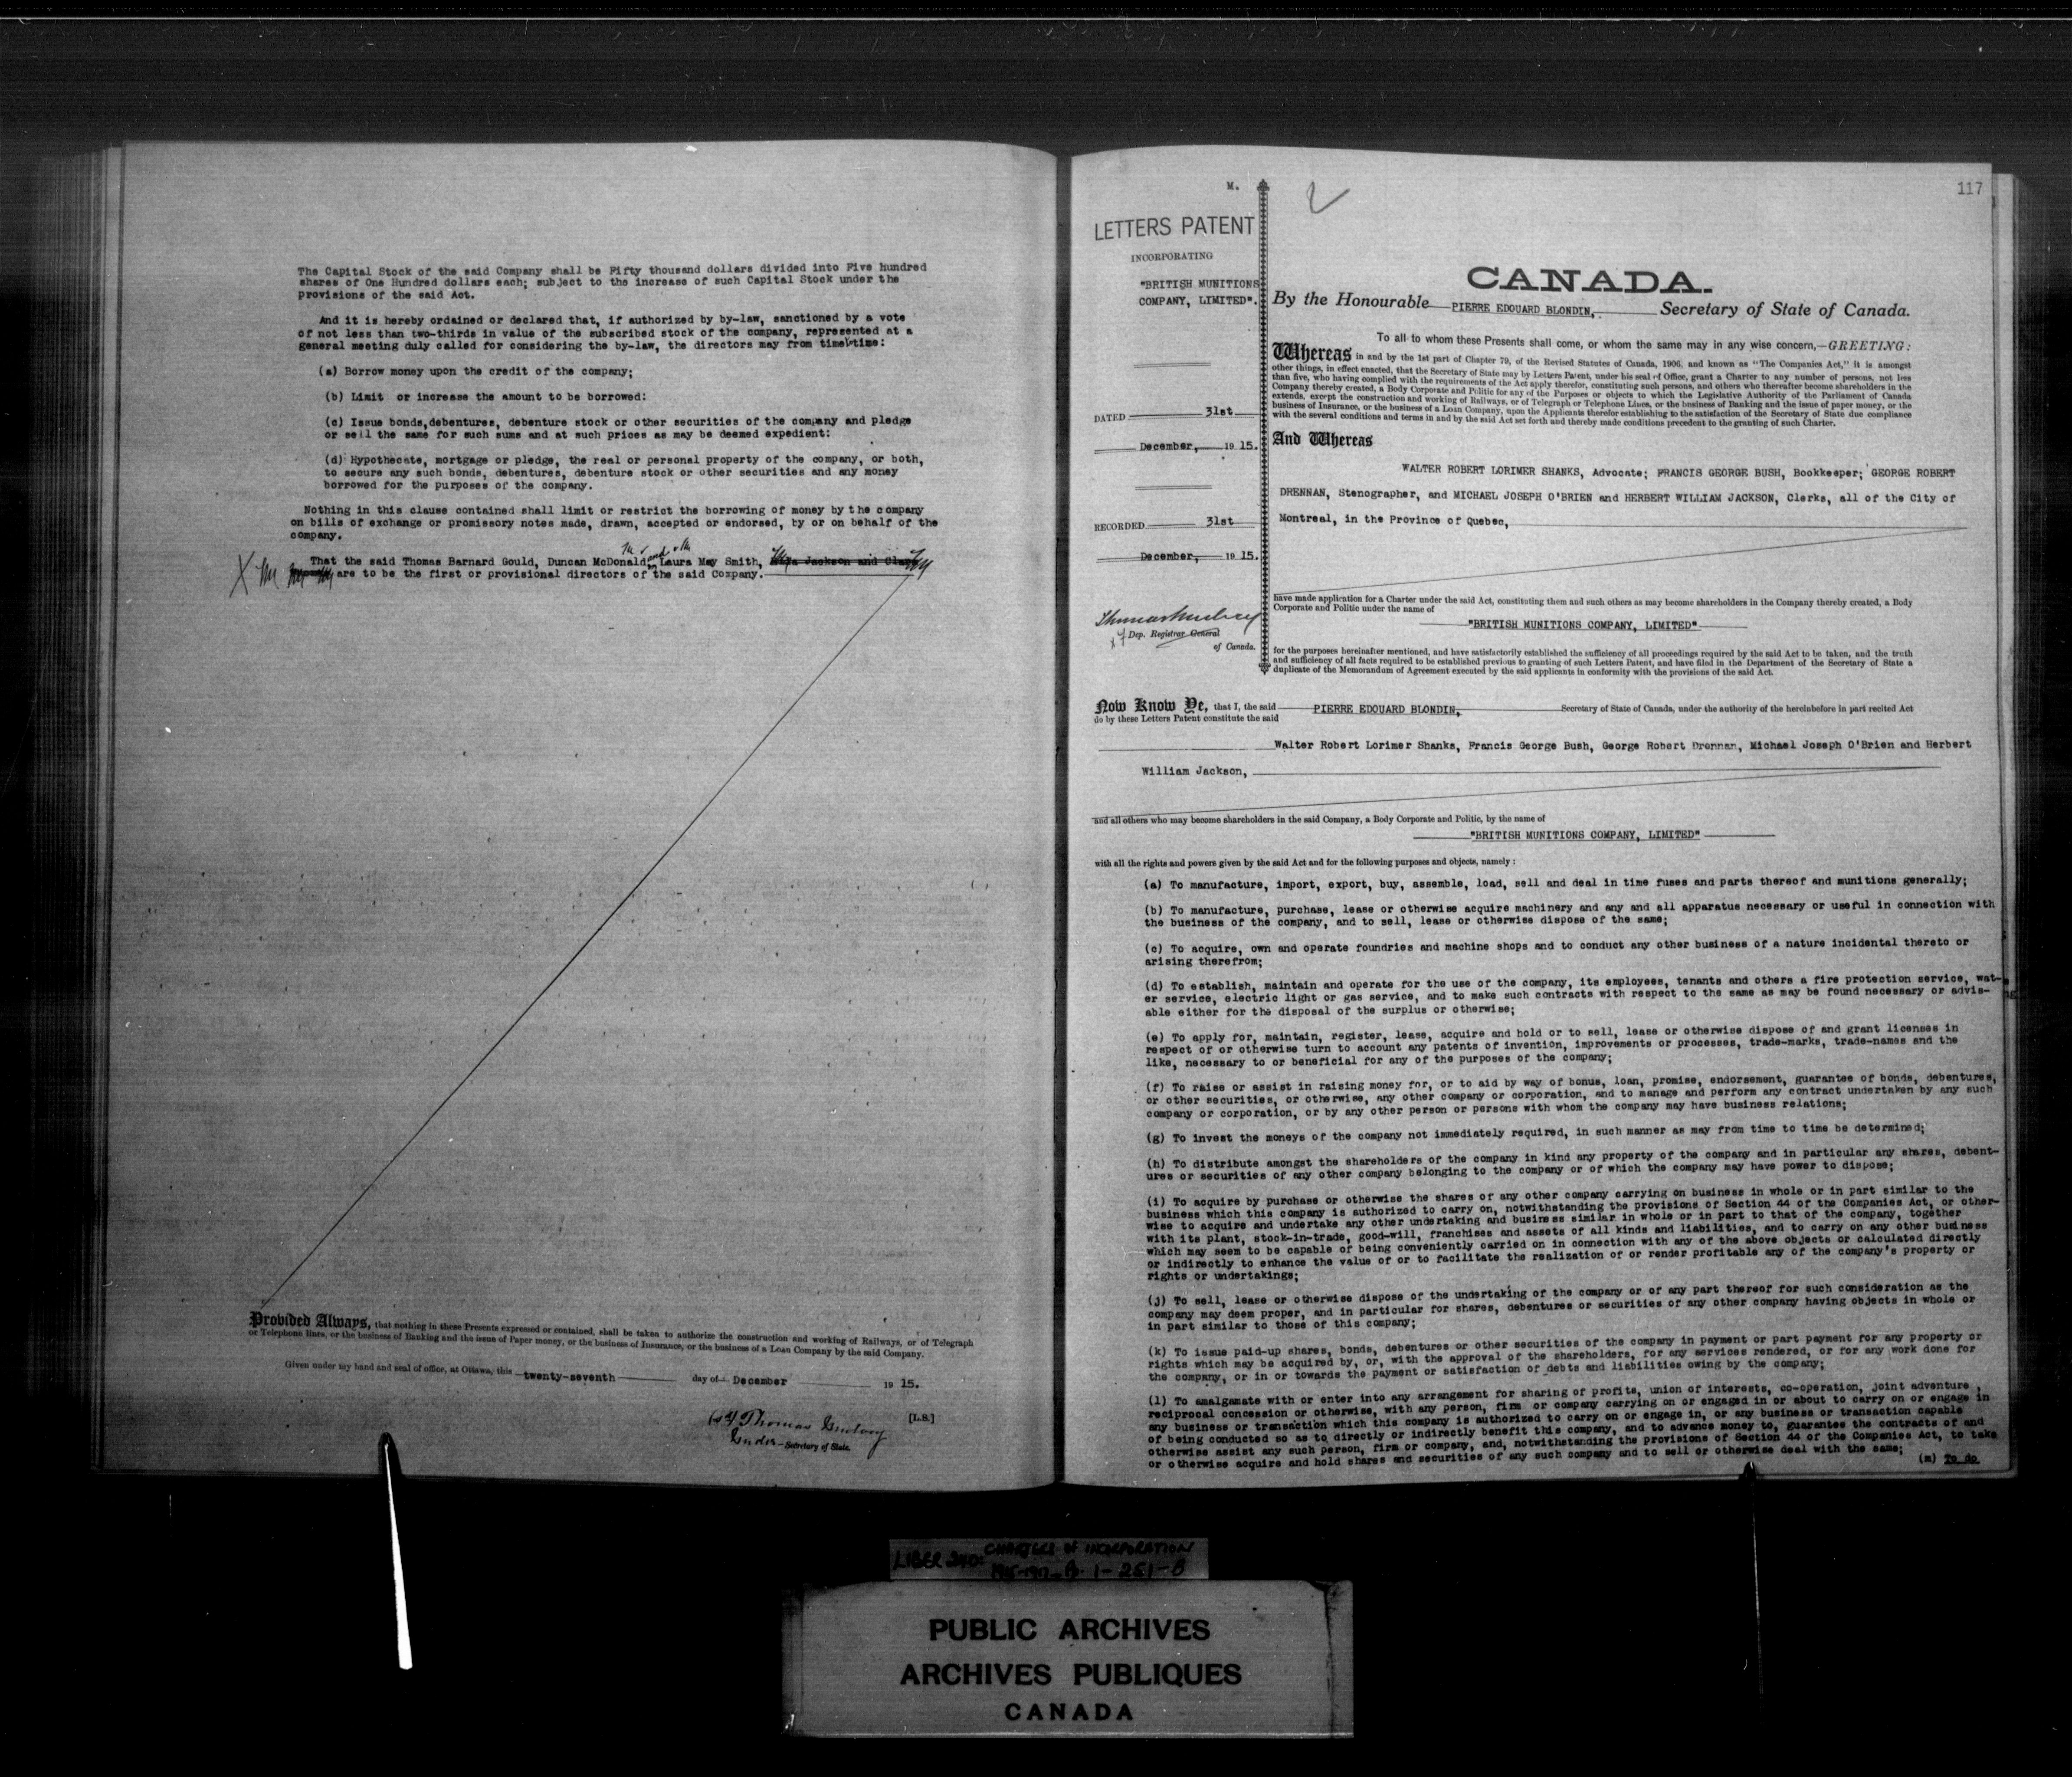 The Capital Stock of the said Company shall be Fifty thousand dollars divided into Five hundred
shares of One Hundred dollars each; subject to the increase of such Capital Stock under the
provisions of the said Act.
And it is hereby ordained or declared that, if authorized by by-law, sanctioned by a vote
of not less than two-thirds in value of the subscribed stock of the company, represented at a
general meeting duly called for considering the by-law, the directors may from time time:
(a) Borrow money upon the credit of the company;
(b) Limit or increase the amount to be borrowed:
(c) Issue bonds,debentures, debenture stock or other securities of the company and pledge
or sell the same for such sums and at such prices as may be deemed expedient:
(d) Hypothecate, mortgage or pledge, the real or personal property of the company, or both,
to secure any such bonds, debentures, debenture stock or other securities and any money
borrowed for the purposes of the company.
Nothing in this clause contained shall limit or restrict the borrowing of money by the company
on bills of exchange or promissory notes made, drawn, accepted or endorsed, by or on behalf of the
company.
and
That the said Thomas Barnard Gould, Duncan McDonald, Laura May Smith, Jackson and
are to be the first or provisional directors of the said Company.
Provided Always, that nothing in these Presents expressed or contained, shall be taken to authorize the construction and working of Railways, or of Telegraph
or Telephone lines, or the business of Banking and the issue of Paper money, or the business of Insurance, or the business of a Loan Company by the said Company.
Given under my hand and seal of office, at Ottawa, this twenty-seventh day of December 19 15.
Thomas Mulvey [L.S.]
Under-Secretary of State.
117
M.
LETTERS PATENT
INCORPORATING
"BRITISH MUNITIONS
COMPANY, LIMITED".
DATED 31st
December, 19 15.
RECORDED 31st
December, 19 15.
Thomas Mulvey
Dep. Registrar General
of Canada.
CANADA.
By the Honourable PIERRE EDOUARD BLONDIN, Secretary of State of Canada.
To all to whom these Presents shall come, or whom the same may in any wise concern,—GREETING:
Whereas in and by the 1st part of Chapter 79, of the Revised Statutes of Canada, 1906, and known as "The Companies Act," it is amongst
other things, in effect enacted, that the Secretary of State may by Letters Patent, under his seal of Office, grant a Charter to any number of persons, not less
than five, who having complied with the requirements of the Act apply therefor, constituting such persons, and others who thereafter become shareholders in the
Company thereby created, a Body Corporate and Politic for any of the Purposes or objects to which the Legislative Authority of the Parliament of Canada
extends, except the construction and working of Railways, or of Telegraph or Telephone Lines, or the business of Banking and the issue of paper money, or the
business of Insurance, or the business of a Loan Company, upon the Applicants therefor establishing to the satisfaction of the Secretary of State due compliance
with the several conditions and terms in and by the said Act set forth and thereby made conditions precedent to the granting of such Charter.
And Whereas
WALTER ROBERT LORIMER SHANKS, Advocate; FRANCIS GEORGE BUSH, Bookkeeper; GEORGE ROBERT
DRENNAN, Stenographer, and MICHAEL JOSEPH O'BRIEN and HERBERT WILLIAM JACKSON, Clerks, all of the City of
Montreal, in the Province of Quebec,
have made application for a Charter under the said Act, constituting them and such others as may become shareholders in the Company thereby created, a Body
Corporate and Politic under the name of
"BRITISH MUNITIONS COMPANY, LIMITED"
for the purposes hereinafter mentioned, and have satisfactorily established the sufficiency of all proceedings required by the said Act to be taken, and the truth
and sufficiency of all facts required to be established previous to granting of such Letters Patent, and have filed in the Department of the Secretary of State a
duplicate of the Memorandum of Agreement executed by the said applicants in conformity with the provisions of the said Act.
Now Know Ye, that I, the said PIERRE EDOUARD BLONDIN, Secretary of State of Canada, under the authority of the hereinbefore in part recited Act
do by these Letters Patent constitute the said
Walter Robert Lorimer Shanks, Francis George Bush, George Robert Drennan, Michael Joseph O'Brien and Herbert
William Jackson,
and all others who may become shareholders in the said Company, a Body Corporate and Politic, by the name of
"BRITISH MUNITIONS COMPANY, LIMITED"
with all the rights and powers given by the said Act and for the following purposes and objects, namely:
(a) To manufacture, import, export, buy, assemble, load, sell and deal in time fuses and parts thereof and munitions generally;
(b) To manufacture, purchase, lease or otherwise acquire machinery and any and all apparatus necessary or useful in connection with
the business of the company, and to sell, lease or otherwise dispose of the same;
(c) To acquire, own and operate foundries and machine shops and to conduct any other business of a nature incidental thereto or
arising therefrom;
(d) To establish, maintain and operate for the use of the company, its employees, tenants and others a fire protection service, wat-
er service, electric light or gas service, and to make such contracts with respect to the same as may be found necessary or advis-
able either for the disposal of the surplus or otherwise;
(e) To apply for, maintain, register, lease, acquire and hold or to sell, lease or otherwise dispose of and grant licenses in
respect of or otherwise turn to account any patents of invention, improvements or processes, trade-marks, trade-names and the
like, necessary to or beneficial for any of the purposes of the company;
(f) To raise or assist in raising money for, or to aid by way of bonus, loan, promise, endorsement, guarantee of bonds, debentures,
or other securities, or otherwise, any other company or corporation, and to manage and perform any contract undertaken by any such
company or corporation, or by any other person or persons with whom the company may have business relations;
(g) To invest the moneys of the company not immediately required, in such manner as may from time to time be determined;
(h) To distribute amongst the shareholders of the company in kind any property of the company and in particular any shares, debent-
ures or securities of any other company belonging to the company or of which the company may have power to dispose;
(i) To acquire by purchase or otherwise the shares of any other company carrying on business in whole or in part similar to the
business which this company is authorized to carry on, notwithstanding the provisions of Section 44 of the Companies Act, or other-
wise to acquire and undertake any other undertaking and business similar in whole or in part to that of the company, together
with its plant, stock-in-trade, good-will, franchises and assets of all kinds and liabilities, and to carry on any other business
which may seem to be capable of being conveniently carried on in connection with any of the above objects or calculated directly
or indirectly to enhance the value of or to facilitate the realization of or render profitable any of the company's property or
rights or undertakings;
(j) To sell, lease or otherwise dispose of the undertaking of the company or of any part thereof for such consideration as the
company may deem proper, and in particular for shares, debentures or securities of any other company having objects in whole or
in part similar to those of this company;
(k) To issue paid-up shares, bonds, debentures or other securities of the company in payment or part payment for any property or
rights which may be acquired by, or, with the approval of the shareholders, for any services rendered, or for any work done for
the company, or in or towards the payment or satisfaction of debts and liabilities owing by the company;
(l) To amalgamate with or enter into any arrangement for sharing of profits, union of interests, co-operation, joint adventure,
reciprocal concession or otherwise, with any person, firm or company carrying on or engaged in or about to carry on or engage in
any business or transaction which this company is authorized to carry on or engage in, or any business or transaction capable
of being conducted so as to directly or indirectly benefit this company, and to advance money to, guarantee the contracts of and
otherwise assist any such person, firm or company, and, notwithstanding the provisions of Section 44 of the Companies Act, to take
or otherwise acquire and hold shares and securities of any such company and to sell or otherwise deal with the same;
(m) To do
LIBER 240: CHARTERS of INCORPORATION
1915-1917
PUBLIC ARCHIVES
ARCHIVES PUBLIQUES
CANADA